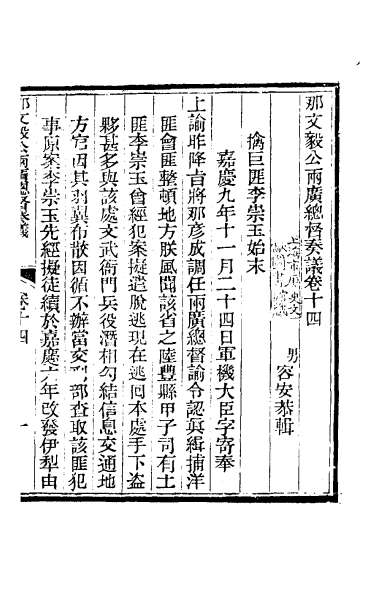 那文毅公兩廣總督奏議卷十四
男 容安恭輯
擒巨匪李崇玉始末
嘉慶九年十一月二十四日軍機大臣字寄奉
上諭昨降旨將那彥成調任兩廣總督諭令認眞緝捕洋
匪會匪整頓地方朕風聞該省之陸豐縣甲子司有土
匪李崇玉曾經犯案擬遣脫逃現在逃回本處手下盜
夥甚多與該處文武衙門兵役潛相勾結信息交通地
方官因其羽翼布散因循不辦當交刑部查取該匪犯
事原案李崇玉先經擬徒續於嘉慶六年改發伊犁由
那文毅公兩廣總督奏議 卷十四 一